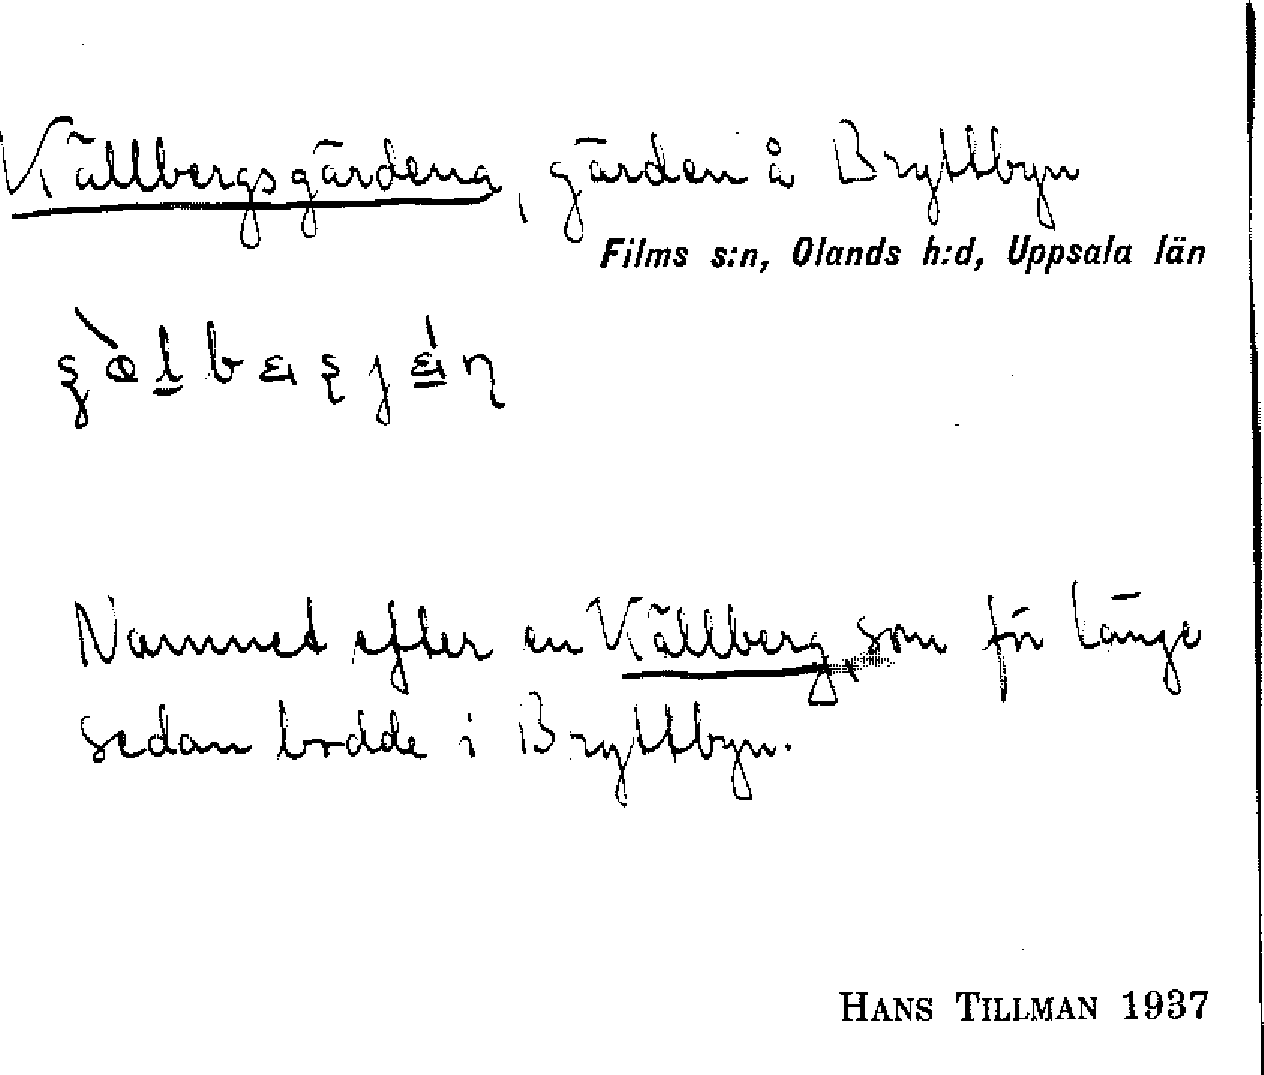 Källbergsgärdena, gärden å Bryttbyn
Films s:n, Olands h:d, Uppsala län
Namnet efter en Källberg, som för länge
sedan bodde i Bryttbyn.
HANS TILLMAN 1937